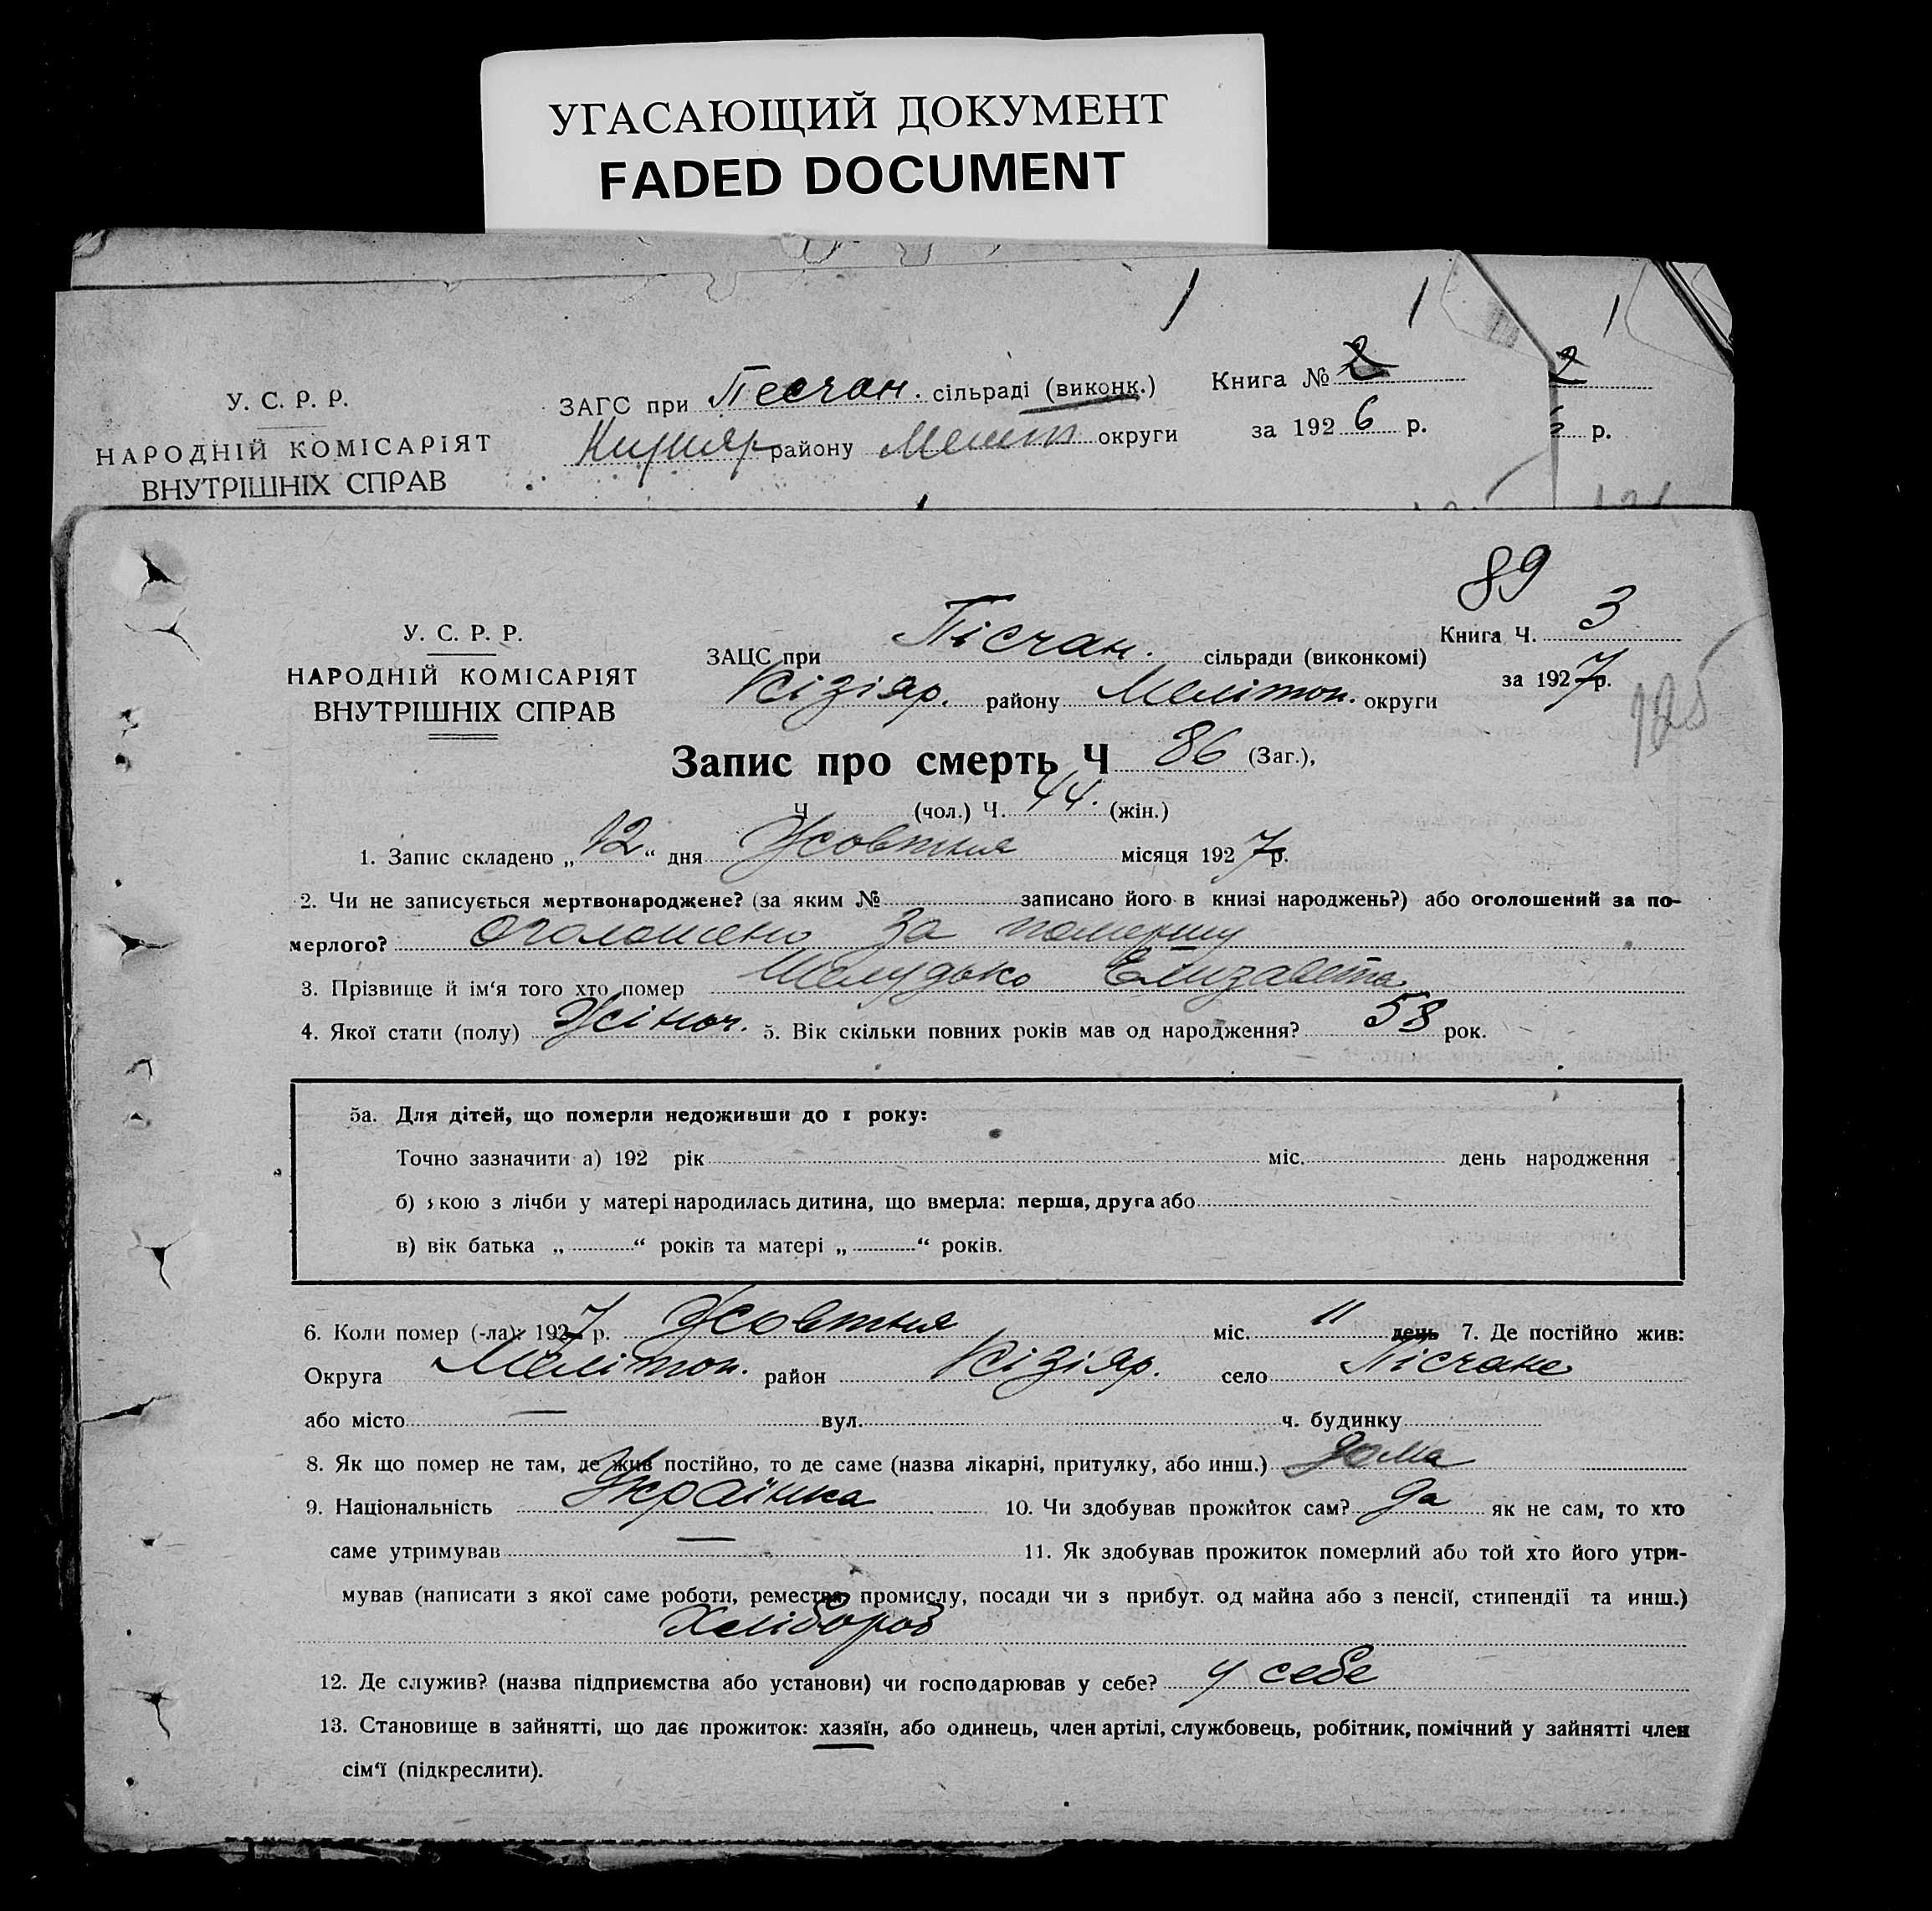 УГАСАЮЩИЙ ДОКУМЕНТ
FADED DOCUMENT
У. С. Р. Р.
НАРОДНІЙ КОМІСАРІЯТ
ВНУТРІШНІХ СПРАВ
ЗАГС при Песчан. сільраді (виконк.)
району Мелит округи
Книга № 2
за 1926 р.
2
р.
89
У. С. Р. Р.
НАРОДНІЙ КОМІСАРІЯТ
ВНУТРІШНІХ СПРАВ
ЗАЦС при Пісчан. сільради (виконкомі)
Кізіяр. району Мелітоп. округи
Книга Ч. 3
за 1927 р.
125
Запис про смерть Ч 86 (Заг.),
Ч (чол.) Ч. 44. (жін.)
1. Запис складено „12“ дня Жовтня місяця 1927 р.
2. Чи не записується мертвонароджене? (за яким № записано його в книзі народжень?) або оголошений за по-
мерлого? Оголошено за помершу
3. Прізвище й ім'я того хто помер Шелудько Елизавета
4. Якої стати (полу) Жіноч. 5. Вік скільки повних років мав од народження? 58 рок.
5а. Для дітей, що померли недоживши до 1 року:
Точно зазначити а) 192 рік міс. день народження
б) якою з лічби у матері народилась дитина, що вмерла: перша, друга або
в) вік батька „ “ років та матері „ “ років.
6. Коли помер (-ла): 1927 р. Жовтня міс. 11 день 7. Де постійно жив:
Округа Мелітоп. район Кізіяр. село Пісчане
або місто — вул. ч. будинку
8. Як що помер не там, де жив постійно, то де саме (назва лікарні, притулку, або инш.) дома
9. Національність Українка 10. Чи здобував прожиток сам? да як не сам, то хто
саме утримував — 11. Як здобував прожиток померлий або той хто його утри-
мував (написати з якої саме роботи, ремества, промислу, посади чи з прибут. од майна або з пенсії, стипендії та инш.)
Хлібороб
12. Де служив? (назва підприємства або установи) чи господарював у себе? у себе
13. Становище в зайнятті, що дає прожиток: хазяїн, або одинець, член артілі, службовець, робітник, помічний у зайнятті член
сім'ї (підкреслити).